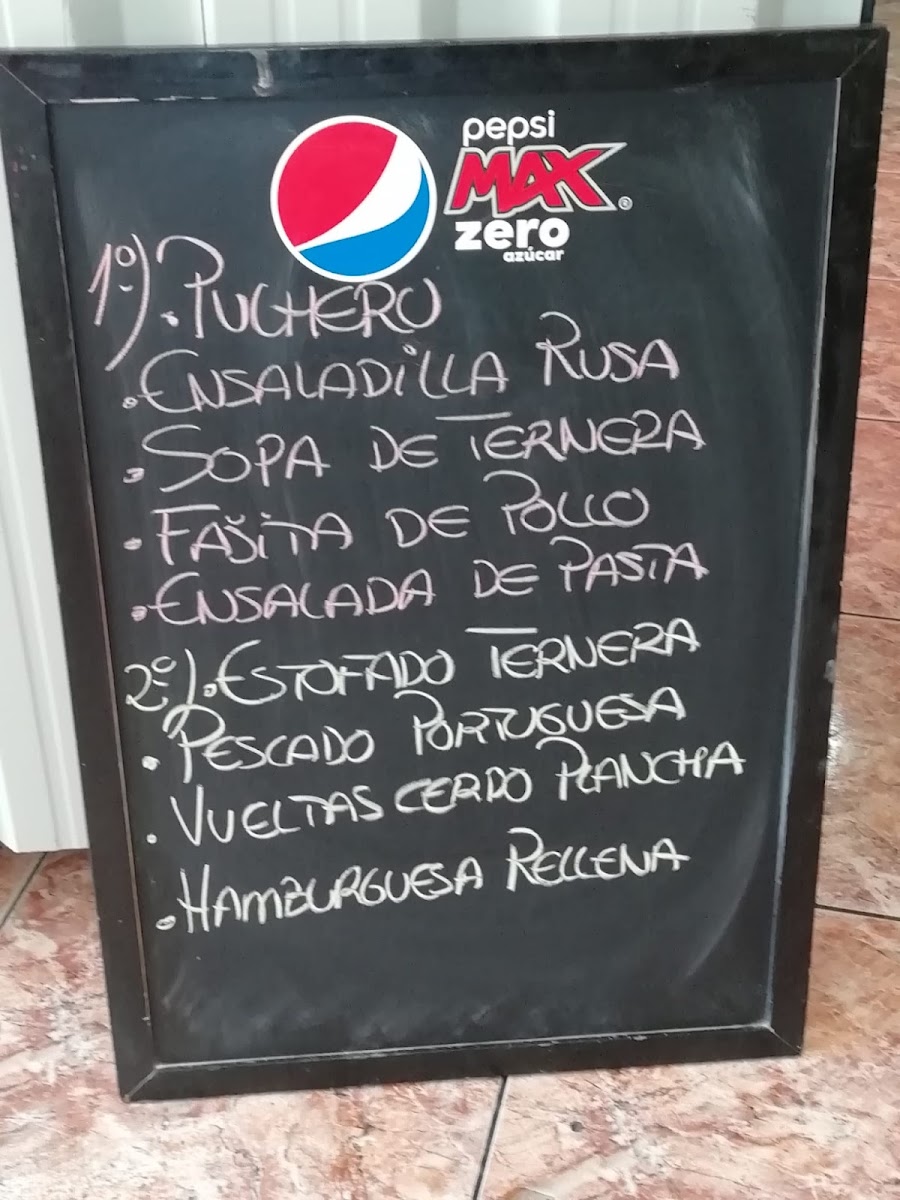 pepsi
MAX®
zero
azúcar
1º) . PUCHERO
. ENSALADiLLA RUSA
. SOPA DE TERNERA
. FAJiTA DE POLLO
. ENSALADA DE PASTA
2º) . ESTOFADO TERNERA
. PESCADO PORTUGUESA
. VUELTAS CERDO PLANCHA
. HAMBURGUESA RELLENA